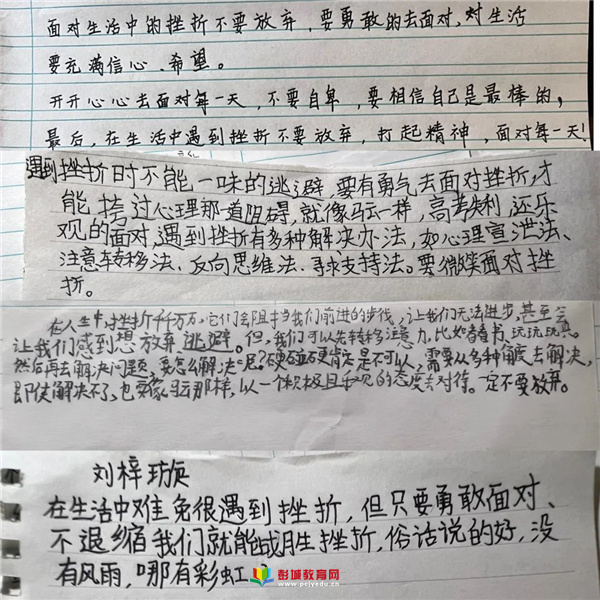 面对生活中的挫折不要放弃，要勇敢的去面对，对生活
要充满信心、希望。
开开心心去面对每一天，不要自卑，要相信自己是最棒的，
最后，在生活中遇到挫折不要放弃，打起精神，面对每一天！
遇到挫折时不能一味的逃避，要有勇气去面对挫折，才
能挠过心理那一道阻碍，就像马云一样，高考失利，还乐
观的面对，遇到挫折有多种解决办法，如心理宣泄法、
注意转移法、反向思维法、寻求支持法。要微笑面对挫
折。
在人生中，挫折千千万万，它们会阻挡我们前进的步伐，让我们无法进步，甚至会
让我们感到想放弃、逃避。但，我们可以先转移注意力，比如看看书、玩玩玩具，
然后再去解决问题，要怎么解决呢？硬碰硬肯定是不可以，需要从多种角度去解决，
即使解决不了，也要像马云那样，以一个积极且乐观的态度去对待。一定不要放弃。
刘梓璇
在生活中难免很遇到挫折，但只要勇敢面对、
不退缩我们就能战胜挫折，俗话说的好，没
有风雨，哪有彩虹？
彭城教育网
www.pcjyedu.cn